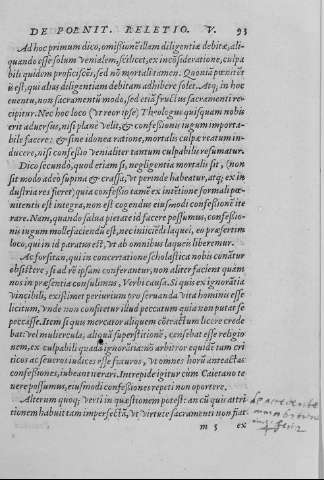 DE POENIT. RELECTIO. V. 93
Ad hoc primum dico, omissionē illam diligentiæ debitæ, ali-
quando esse solum venialem, scilicet, ex incōsideratione, culpa
bili quidem proficiscēs, sed nō mortali tamen. Quoniā pœnitēs
is est, qui alias diligentiam debitam adhibere solet. Atq; in hoc
euentu, non sacramentū modo, sed etiā fructus sacramenti re-
cipitur. Nec hoc loco (vt reor ipse) Theologus quisquam nobis
erit aduersus, nisi plane velit, & confessionis iugum importa-
bile facere: & sine idonea ratione, mortalis culpæ reatum in-
ducere, nisi confessio venialiter tantum culpabilis resumatur.
Dico secundo, quod etiam si, negligentia mortalis sit, (non
sit modo adeo supina & crassa, vt perinde habeatur, atq; ex in-
dustria res fieret) quia confessio tamē ex intētione formali pœ-
nitentis est integra, non est cogendus eiusmodi confessionē ite
rare. Nam, quando salua pietate id facere possumus, confessio-
nis iugum molle faciendū est, nec iniiciēdi laquei, eo præsertim
loco, qui in id paratus est, vt ab omnibus laqueis liberemur.
At forsitan, qui in concertatione scholastica nobis conātur
obsistere, si ad rē ipsam conferantur, non aliter facient quàm
nos in præsentia consulimus. Verbi causa. Si quis ex ignorātia
vincibili, existimet periurium pro seruanda vita hominis esse
licitum, vnde non confitetur illud peccatum quia non putat se
peccasse. Item si quis mercator aliquem cōtractum licere crede
bat: vel muliercula, aliqua superstitionē, censebat esse religio
nem, ex culpabili quadā ignorātia: nō arbitror equidē tam cri
ticos ac seueros iudices esse futuros, vt omnes horū anteactas
confessiones, iubeant iterari. Intrepide igitur cum Caietano te
nere possumus, eiusmodi confessiones repeti non oportere.
Alterum quoq; verti in quæstionem potest: an cū quis attri-
tionem habuit tam imperfectā, vt virtute sacramenti non fiat
m 5 ex